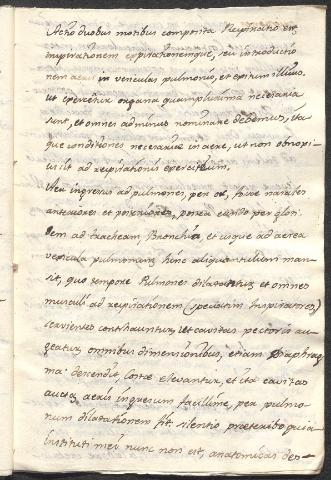 Actio duobus motibus composita Respiratio est
inspirationem expirationemque, seu introductio
nem aeris in vesiculas pulmonis, et exitum illius.
Ut exerceatur organa quamplurima necesaria
sunt, et omnes ad minus nominare debemus, ita
que conditiones necesarias in aere, ut non obnoxi
us sit ad respirationis exercitium.
Aer ingresus ad pulmones, per os, fosae nasales
anteriores et posteriores, postea eundo per gloti
dem ad tracheam, Bronchia, et usque ad aerea
vesicula pulmonum, hinc aliquantulum man
sit, quo tempore Pulmones dilatantur, et omnes
musculi ad respirationem (speciatim Inspiratores)
servientes contrhauntur, et cavitas pectoris au
geatur, omnibus dimensionibus, etiam Diaphrag
ma descendit, Costae elevantur, et ita cavitas
aucta, aeris ingresum facillime, per pulmo
num dilatationem fit. silentio praeteribo quia
instituti mei nunc non est, anatomicas des-